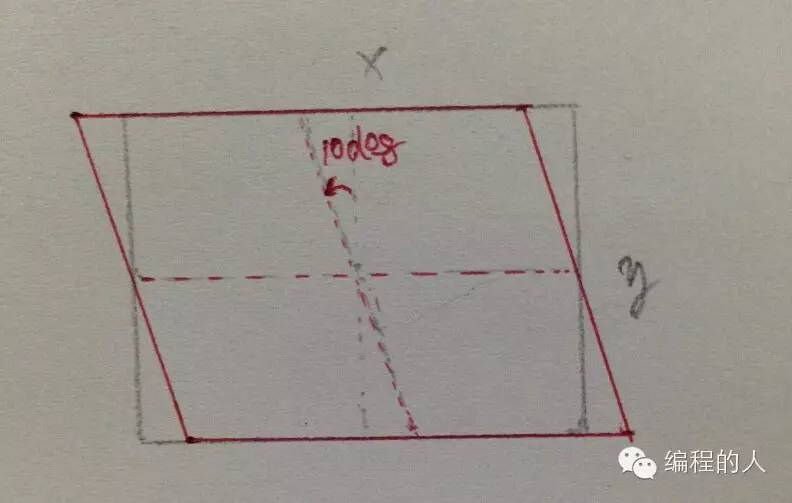 x
10deg
y
编程的人